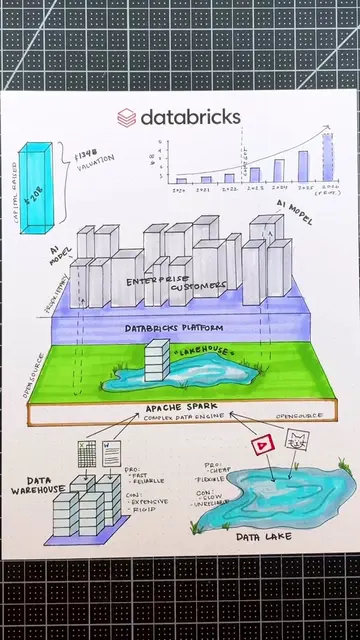 databricks
CAPITAL RAISED
$20B
$134B
VALUATION
$B
5
4
3
2
1
2020 2021 2022 2023 2024 2025 2026
CHATGPT
AI MODEL
AI MODEL
PROPRIETARY
ENTERPRISE
CUSTOMERS
DATABRICKS PLATFORM
OPEN SOURCE
"LAKEHOUSE"
APACHE SPARK
COMPLEX DATA ENGINE
OPENSOURCE
W
DATA
WAREHOUSE
PRO:
- FAST
- RELIABLE
CON:
- EXPENSIVE
- RIGID
PRO:
- CHEAP
- FLEXIBLE
CON:
- SLOW
- UNRELIABLE
DATA LAKE